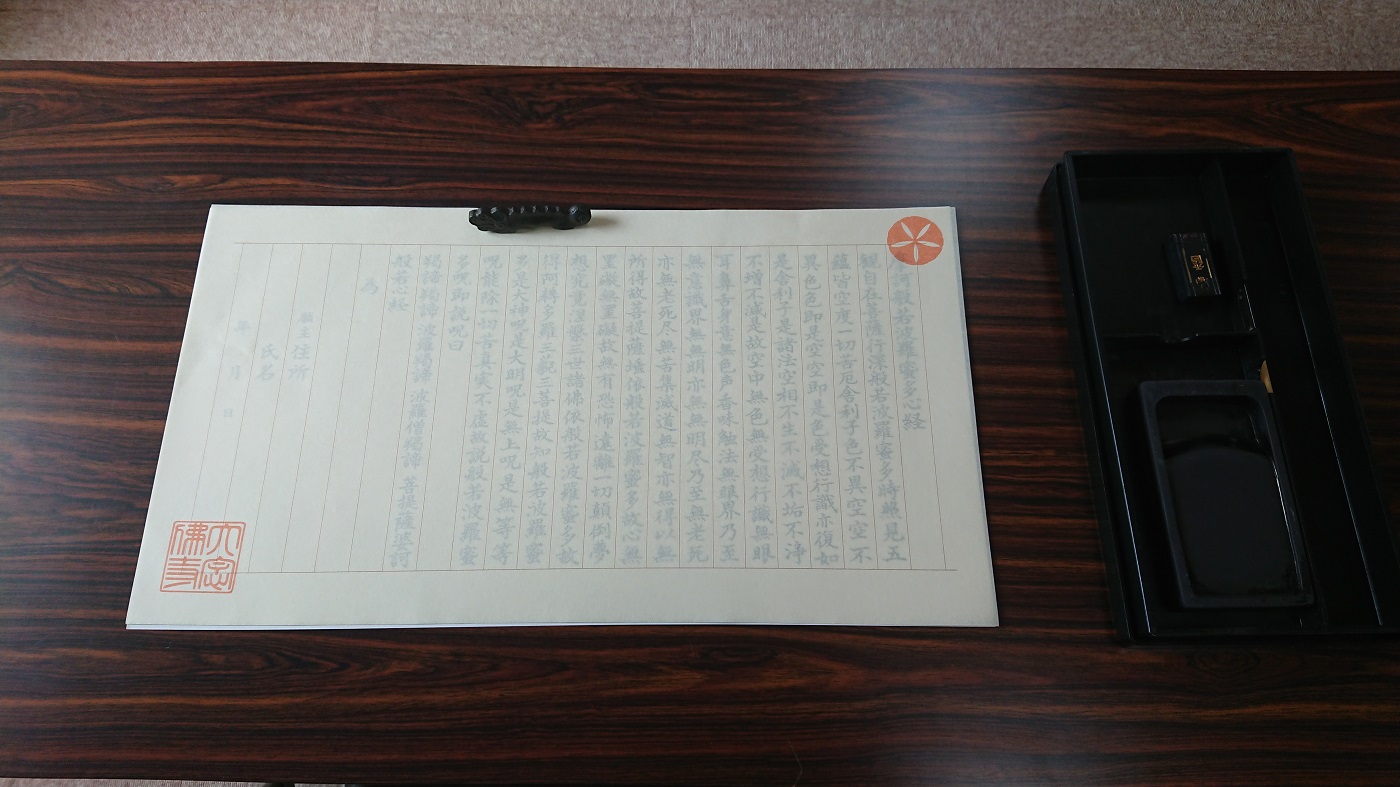 摩訶般若波羅蜜多心経
観自在菩薩行深般若波羅蜜多時照見五
蘊皆空度一切苦厄舎利子色不異空空不
異色色即是空空即是色受想行識亦復如
是舎利子是諸法空相不生不滅不垢不浄
不増不減是故空中無色無受想行識無眼
耳鼻舌身意無色声香味触法無眼界乃至
無意識界無無明亦無無明尽乃至無老死
亦無老死尽無苦集滅道無智亦無得以無
所得故菩提薩埵依般若波羅蜜多故心無
罣礙無罣礙故無有恐怖遠離一切顛倒夢
想究竟涅槃三世諸佛依般若波羅蜜多故
得阿耨多羅三藐三菩提故知般若波羅蜜
多是大神呪是大明呪是無上呪是無等等
呪能除一切苦真実不虚故説般若波羅蜜
多呪即説呪曰
羯諦羯諦 波羅羯諦 波羅僧羯諦 菩提薩婆訶
般若心経
為
願主 住所
氏名
年 月 日
大念佛寺